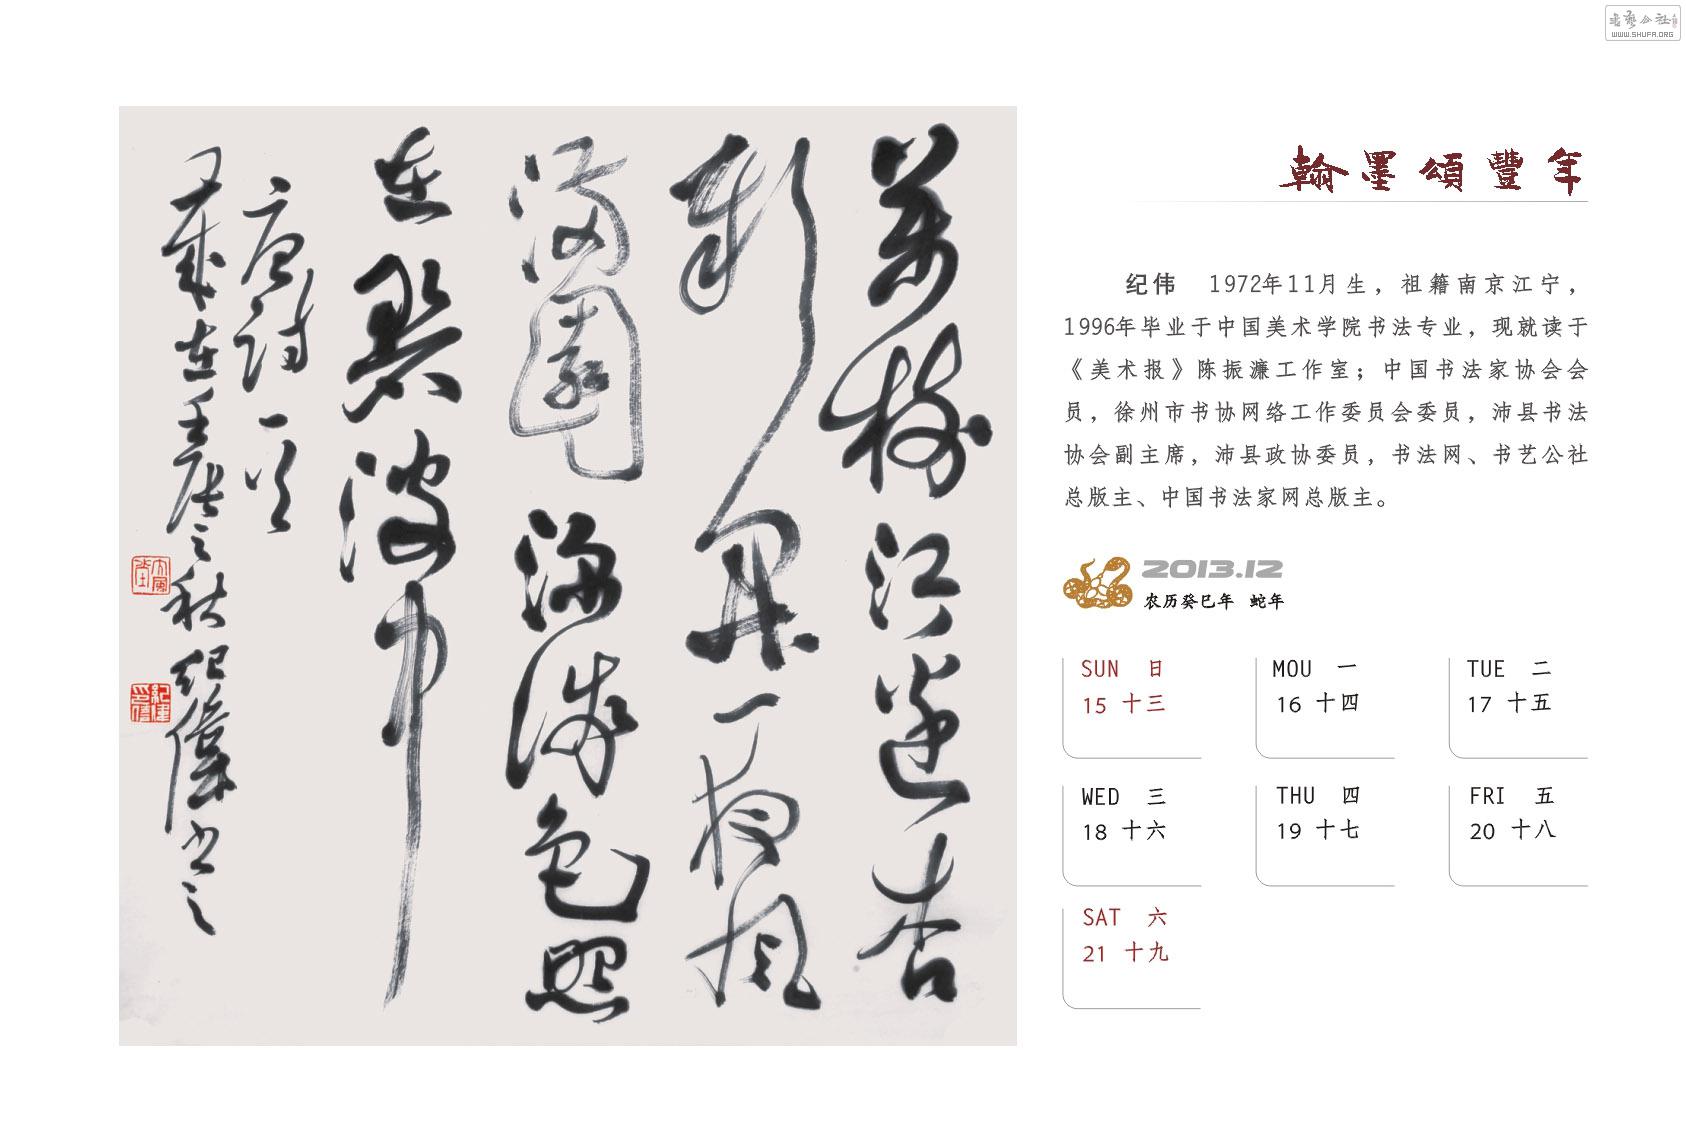 萬樹江邊杏
新開一夜風
滿園深淺色照
在碧波中
唐詩一首
歲在壬辰之秋紀偉書之
書藝公社
WWW.SHUFA.ORG
翰墨頌豐年
纪伟 1972年11月生，祖籍南京江宁，
1996年毕业于中国美术学院书法专业，现就读于
《美术报》陈振濂工作室；中国书法家协会会
员，徐州市书协网络工作委员会委员，沛县书法
协会副主席，沛县政协委员，书法网、书艺公社
总版主、中国书法家网总版主。
2013.12
农历癸巳年 蛇年
SUN 日
15 十三
MOU 一
16 十四
TUE 二
17 十五
WED 三
18 十六
THU 四
19 十七
FRI 五
20 十八
SAT 六
21 十九